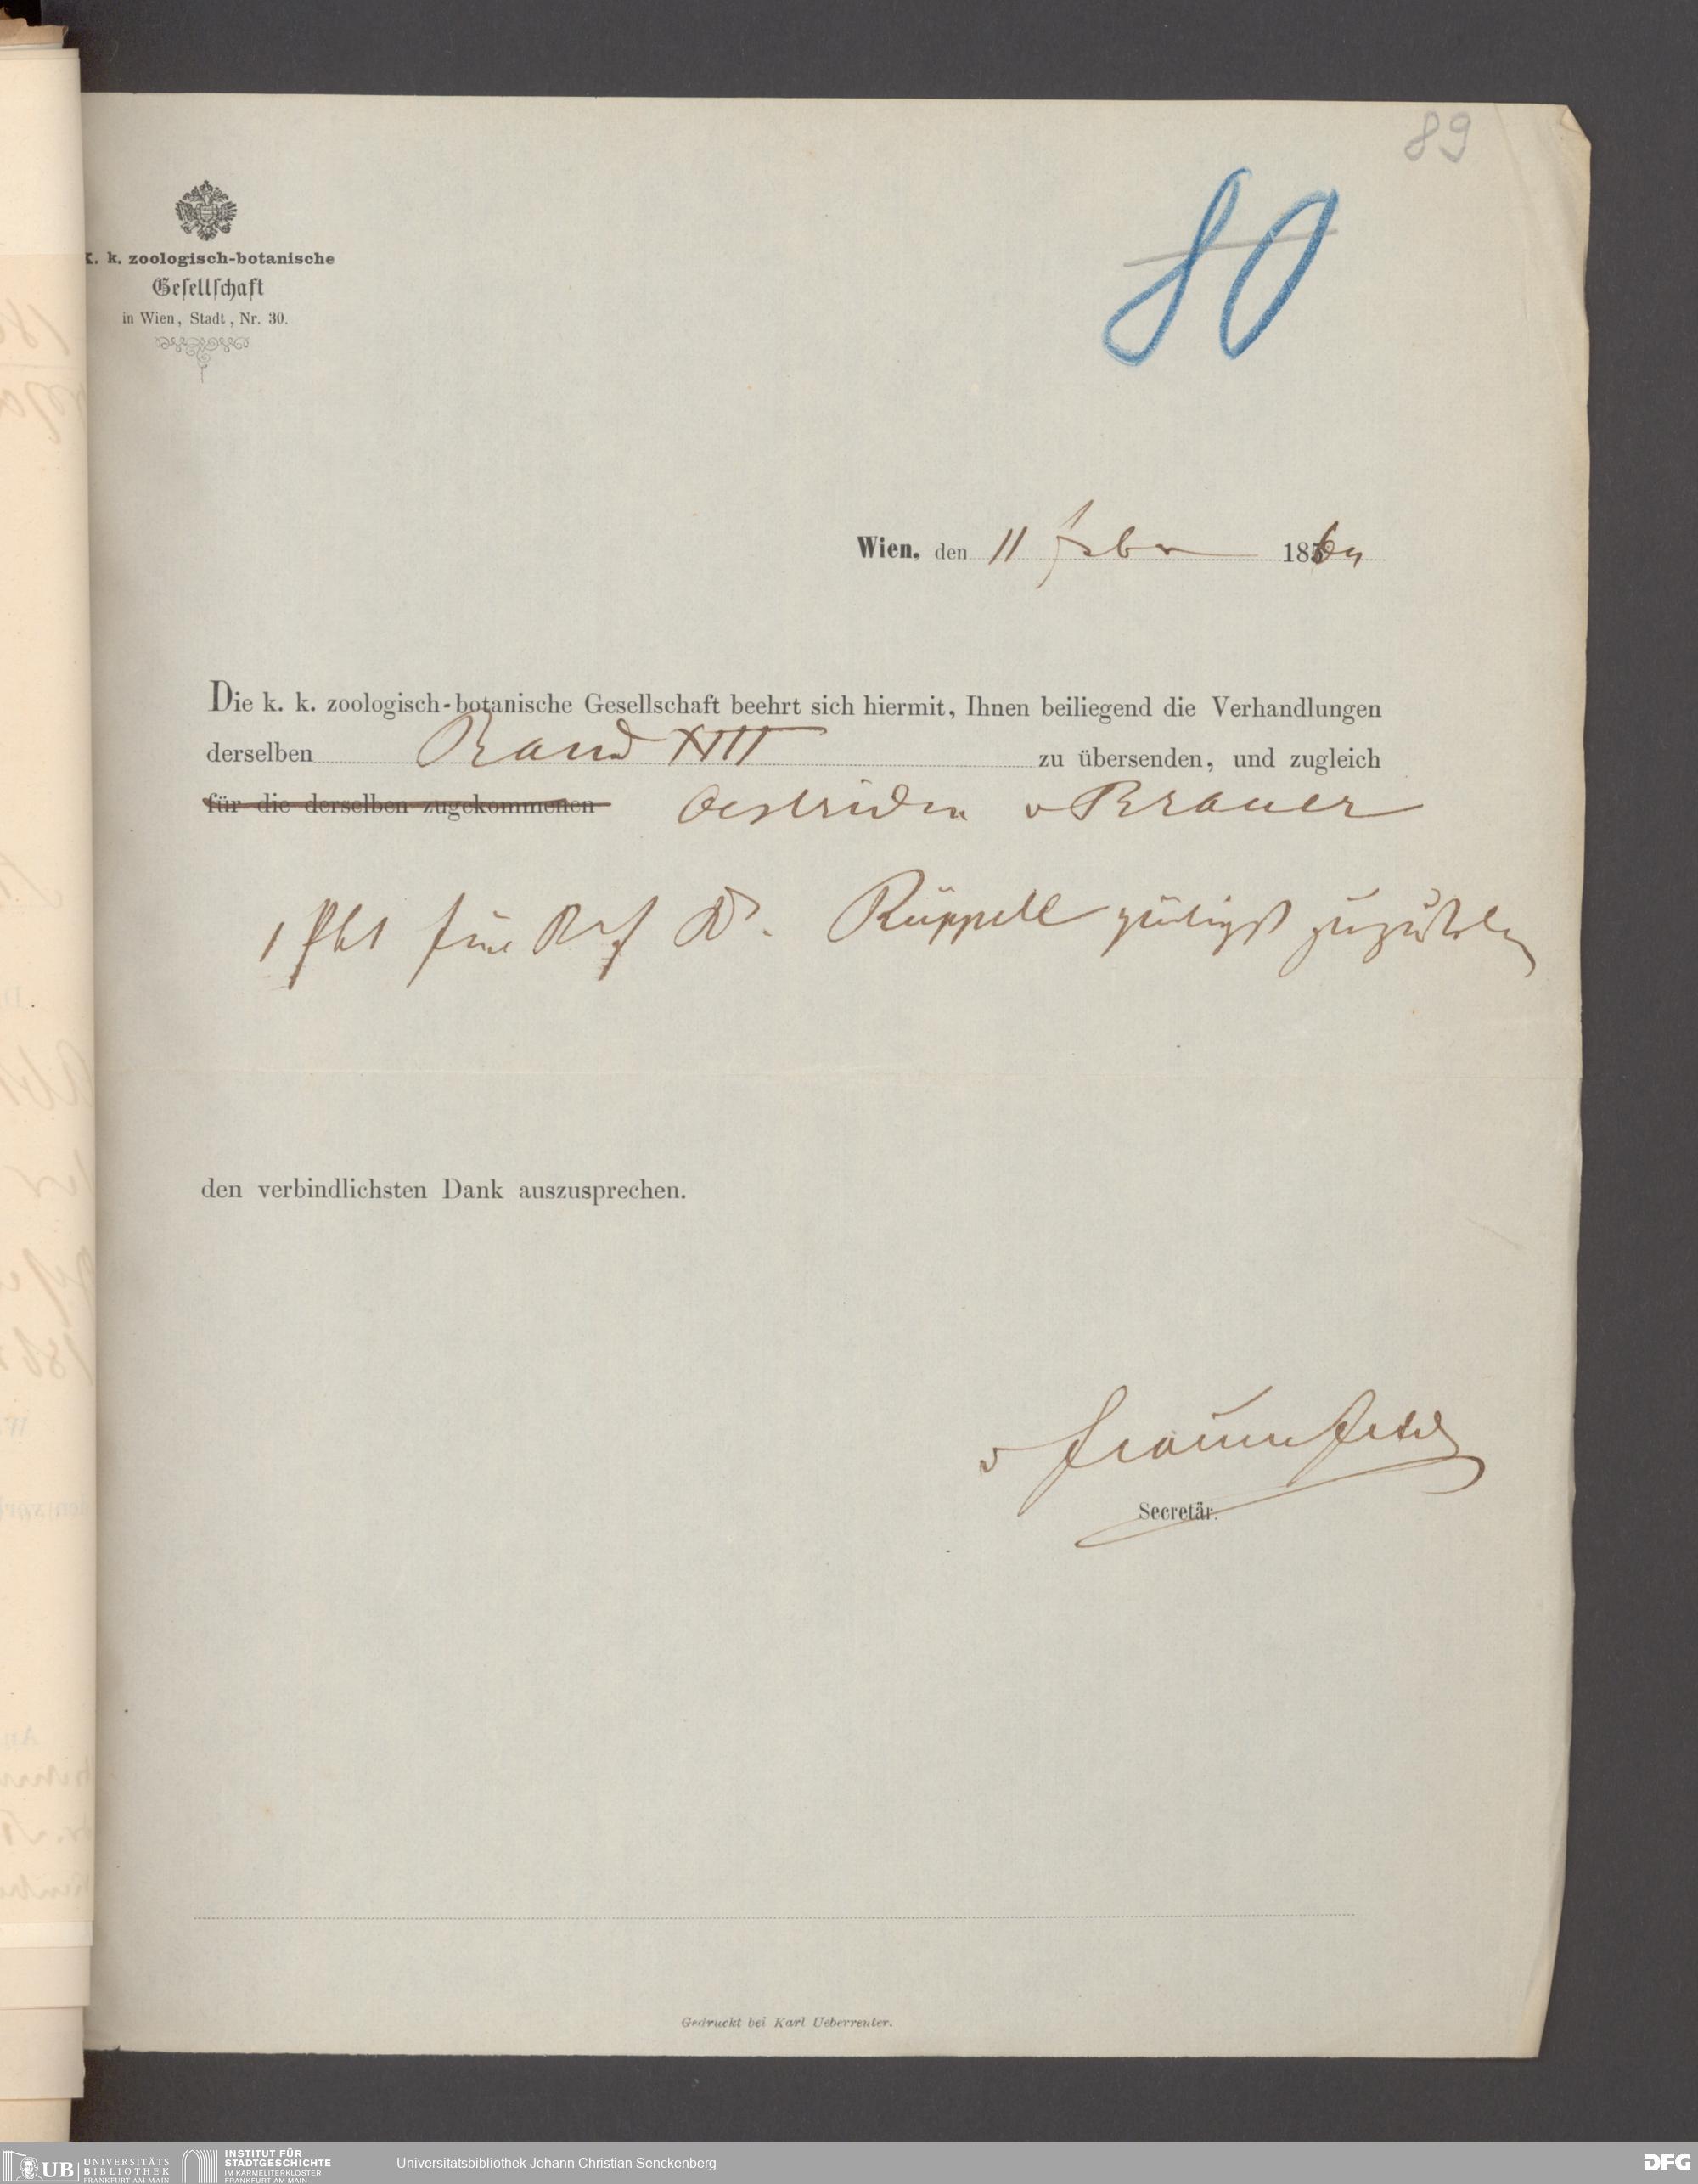 89
80
K. k. zoologisch-botanische
Gesellschaft
in Wien, Stadt, Nr. 30.
Wien, den 11 Febr 1864
Die k. k. zoologisch-botanische Gesellschaft beehrt sich hiermit, Ihnen beiliegend die Verhandlungen
derselben Band XIII zu übersenden, und zugleich
für die derselben zugekommenen Oestriden v Brauer
1 für Dr. Rüppell gütigst
den verbindlichsten Dank auszusprechen.
v Frauenfeld
Secretär.
Gedruckt bei Karl Ueberreuter.
UB UNIVERSITÄTS
BIBLIOTHEK
FRANKFURT AM MAIN
INSTITUT FÜR
STADTGESCHICHTE
IM KARMELITERKLOSTER
FRANKFURT AM MAIN
Universitätsbibliothek Johann Christian Senckenberg
DFG